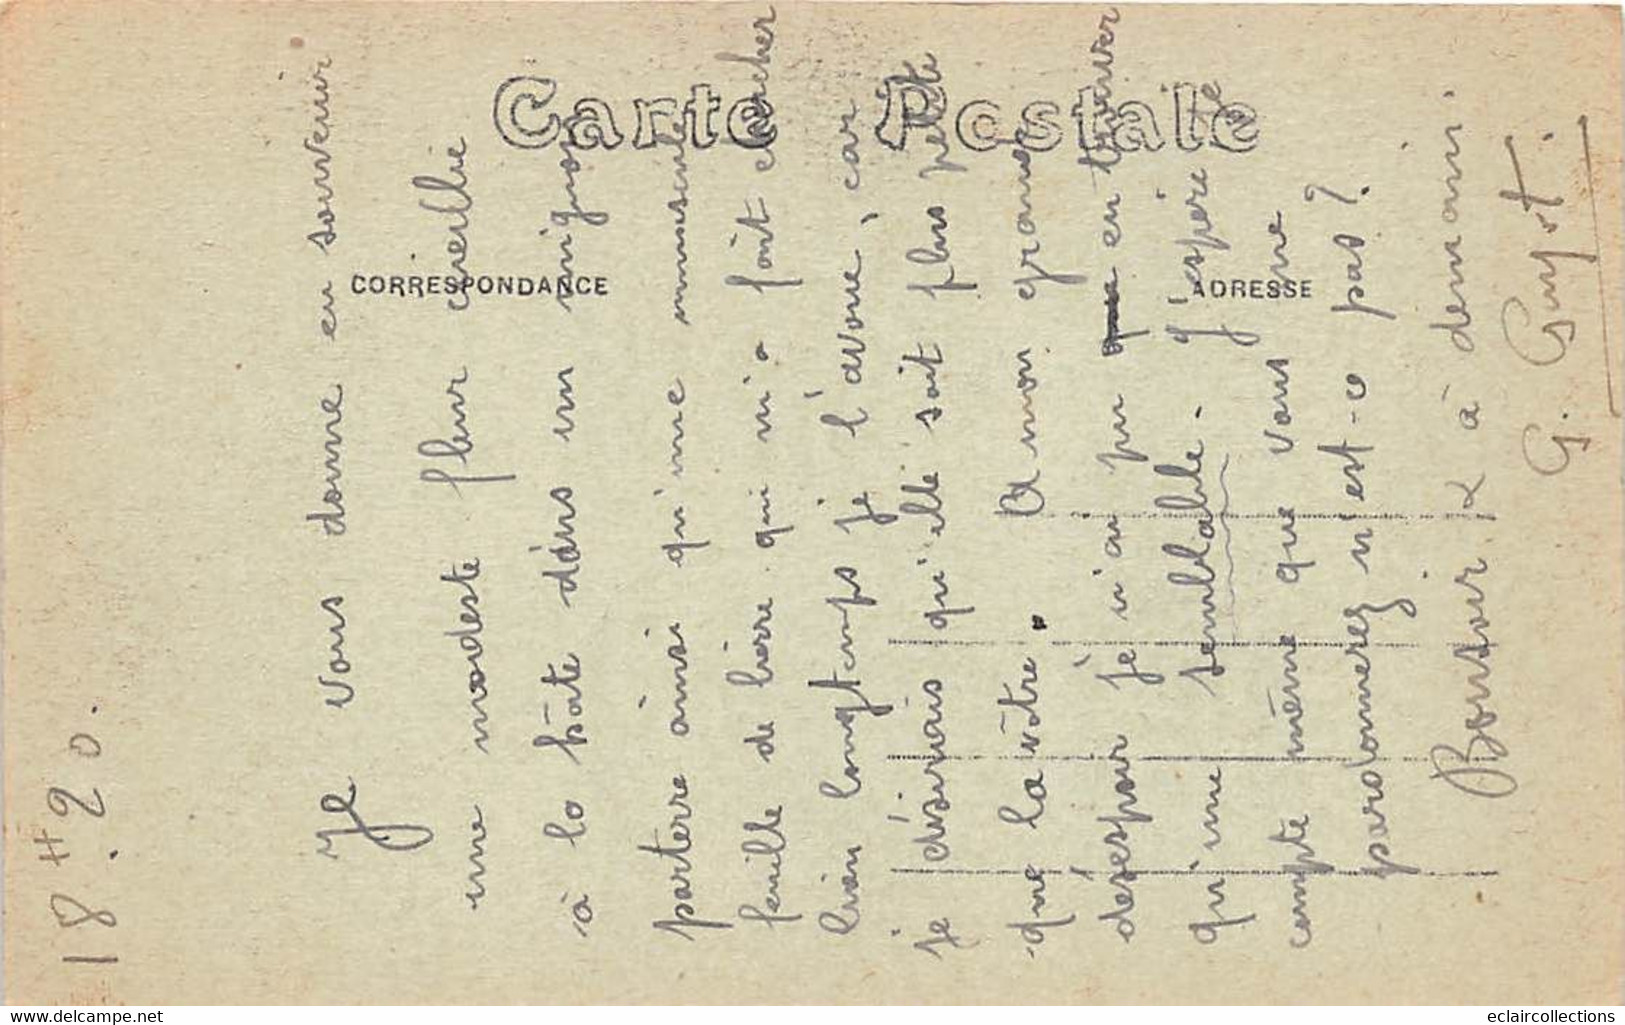 Carte Postale
CORRESPONDANCE
ADRESSE
18H.20.
Je vous donne en souvenir
une modeste fleur cueillie
à la hâte dans un mignon
parterre ainsi qu'une minuscule
feuille de lierre qui m'a fait chercher
bien longtemps je l'avoue, car
je désirais qu'elle soit plus petite
que la vôtre. A mon grand
désespoir je n'ai pu en trouver
qu'une semblable. J'espère
compte même que vous me
pardonnerez n'est-ce pas ?
Bonsoir & à demain.
G. Guyot.
www.delcampe.net
eclaircollections